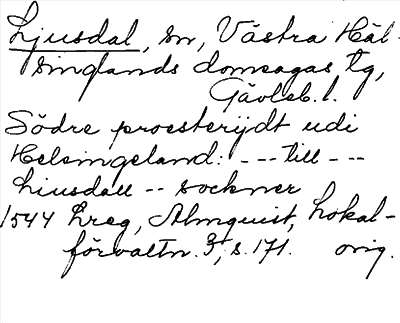 Ljusdal, sn, Västra Häl-
singlands domsagas tg,
Gävleb. l.
Södre proesterijdt udi
Helsingeland: --- till ---
Liusdall -- sockner
1544 Lreg, Almquist, Lokal-
förvaltn. 3, s. 171. orig.